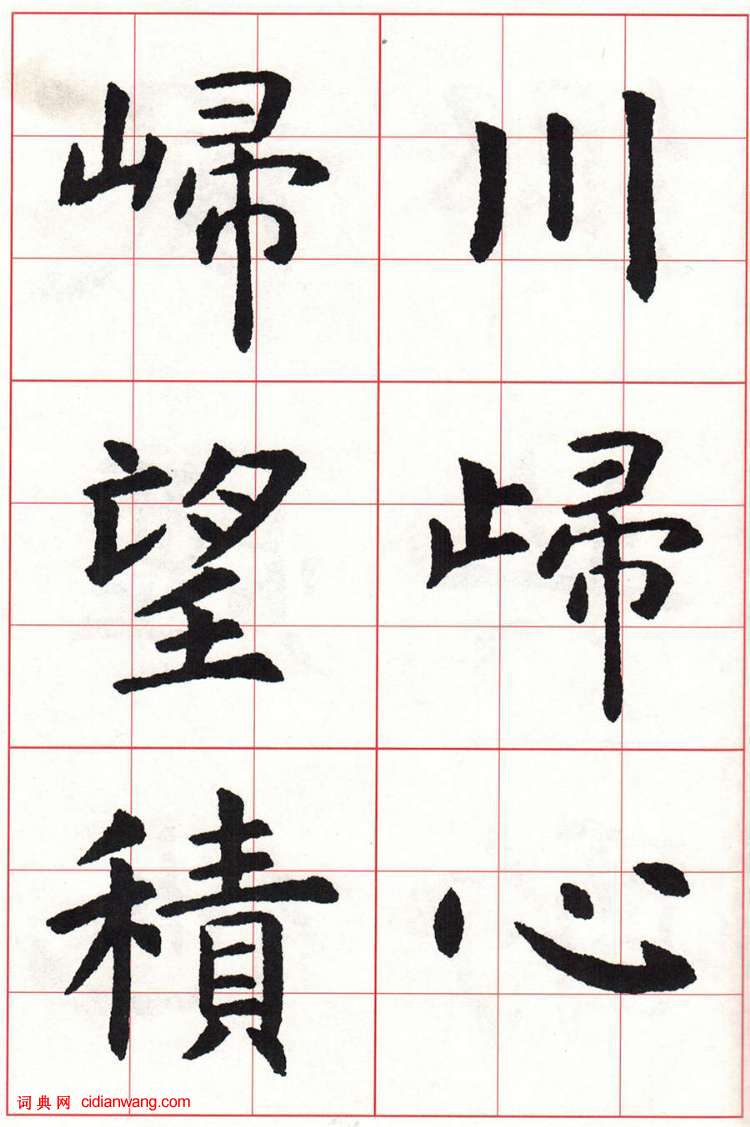 川歸心
歸望積
词典网 cidianwang.com